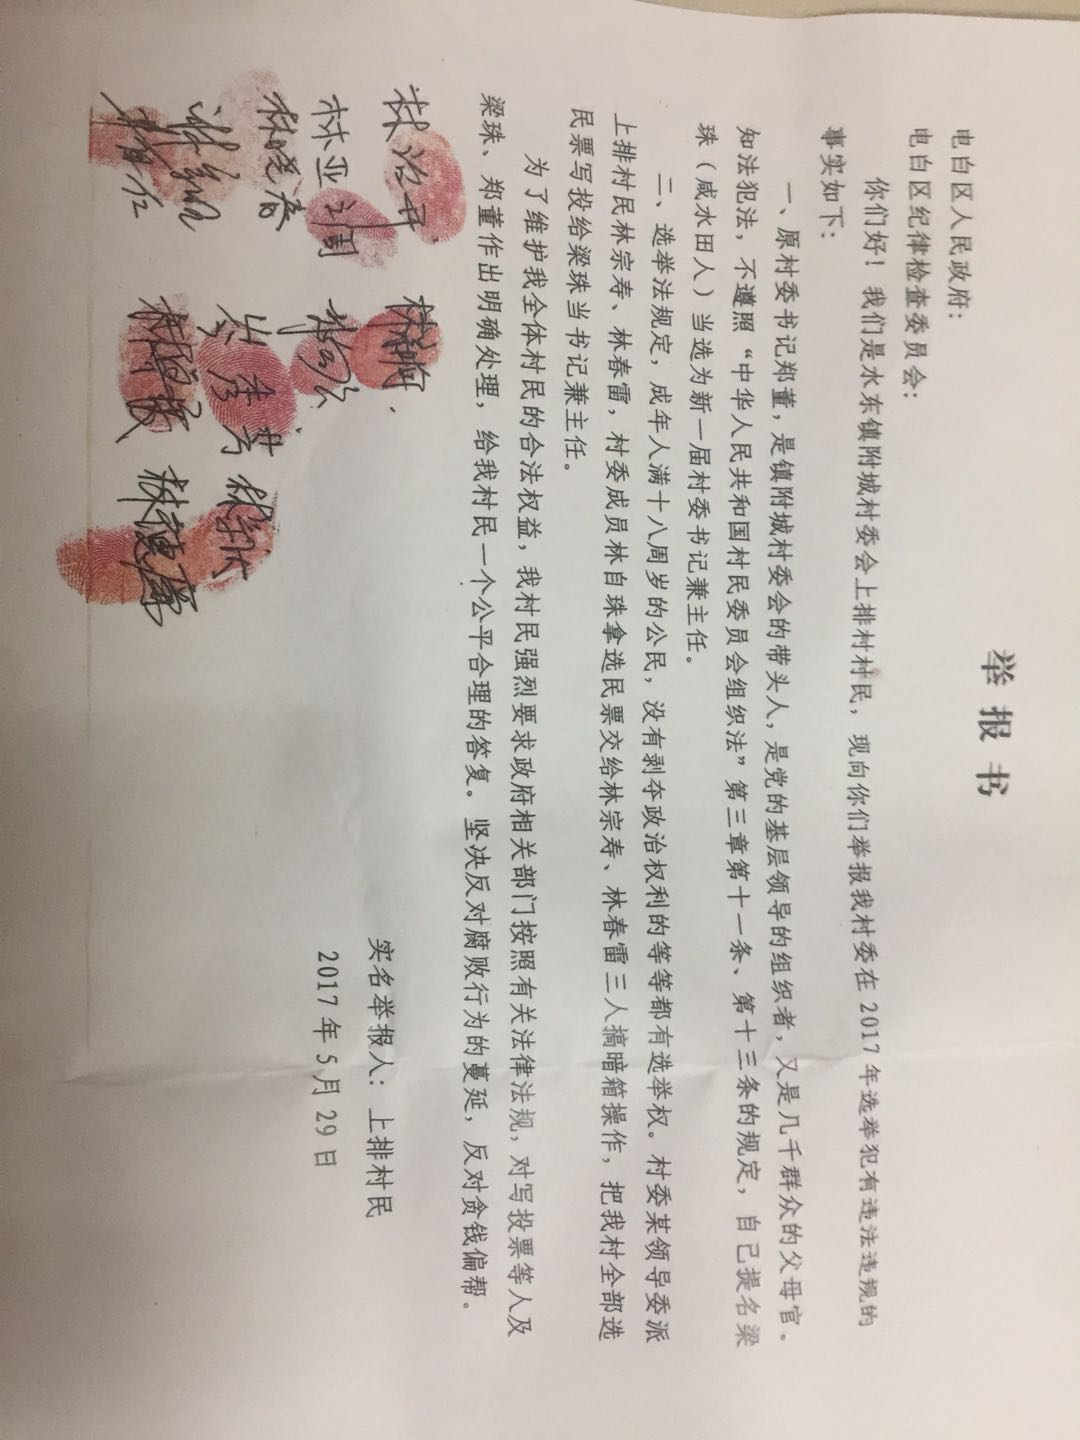 举报书
电白区人民政府：
电白区纪律检查委员会：
你们好！我们是水东镇附城村委会上排村村民，现向你们举报我村委在2017年选举犯有违法违规的
事实如下：
一、原村委书记郑董，是镇附城村委会的带头人，是党的基层领导的组织者，又是几千群众的父母官、
知法犯法，不遵照“中华人民共和国村民委员会组织法”第三章第十一条、第十三条的规定，自己提名梁
珠（咸水田人）当选为新一届村委书记兼主任。
二、选举法规定，成年人满十八周岁的公民，没有剥夺政治权利的等等都有选举权。村委某领导委派
上排村民林宗寿、林春雷，村委成员林自珠拿选民票交给林宗寿、林春雷三人搞暗箱操作，把我村全部选
民票写投给梁珠当书记兼主任。
为了维护我全体村民的合法权益，我村民强烈要求政府相关部门按照有关法律法规，对写投票等人及
梁珠、郑董作出明确处理，给我村民一个公平合理的答复。坚决反对腐败行为的蔓延，反对贪钱偏帮。
实名举报人：上排村民
2017年5月29日
林亚周